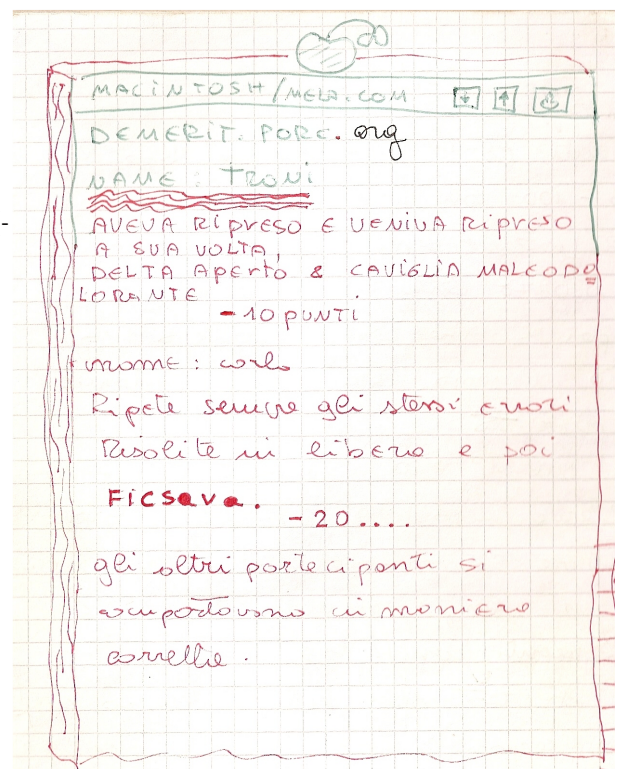 MACINTOSH/MELA.COM
DEMERIT. PORC. org
NAME: TRONI
AVEVA RIPRESO E VENIVA RIPRESO
A SUA VOLTA,
DELTA APERTO & CAVIGLIA MALEODO
LORANTE
- 10 PUNTI
nome: carlo
Ripete sempre gli stessi errori
Risalite in libero e poi
FICSAVA.
- 20....
gli altri partecipanti si
in maniera